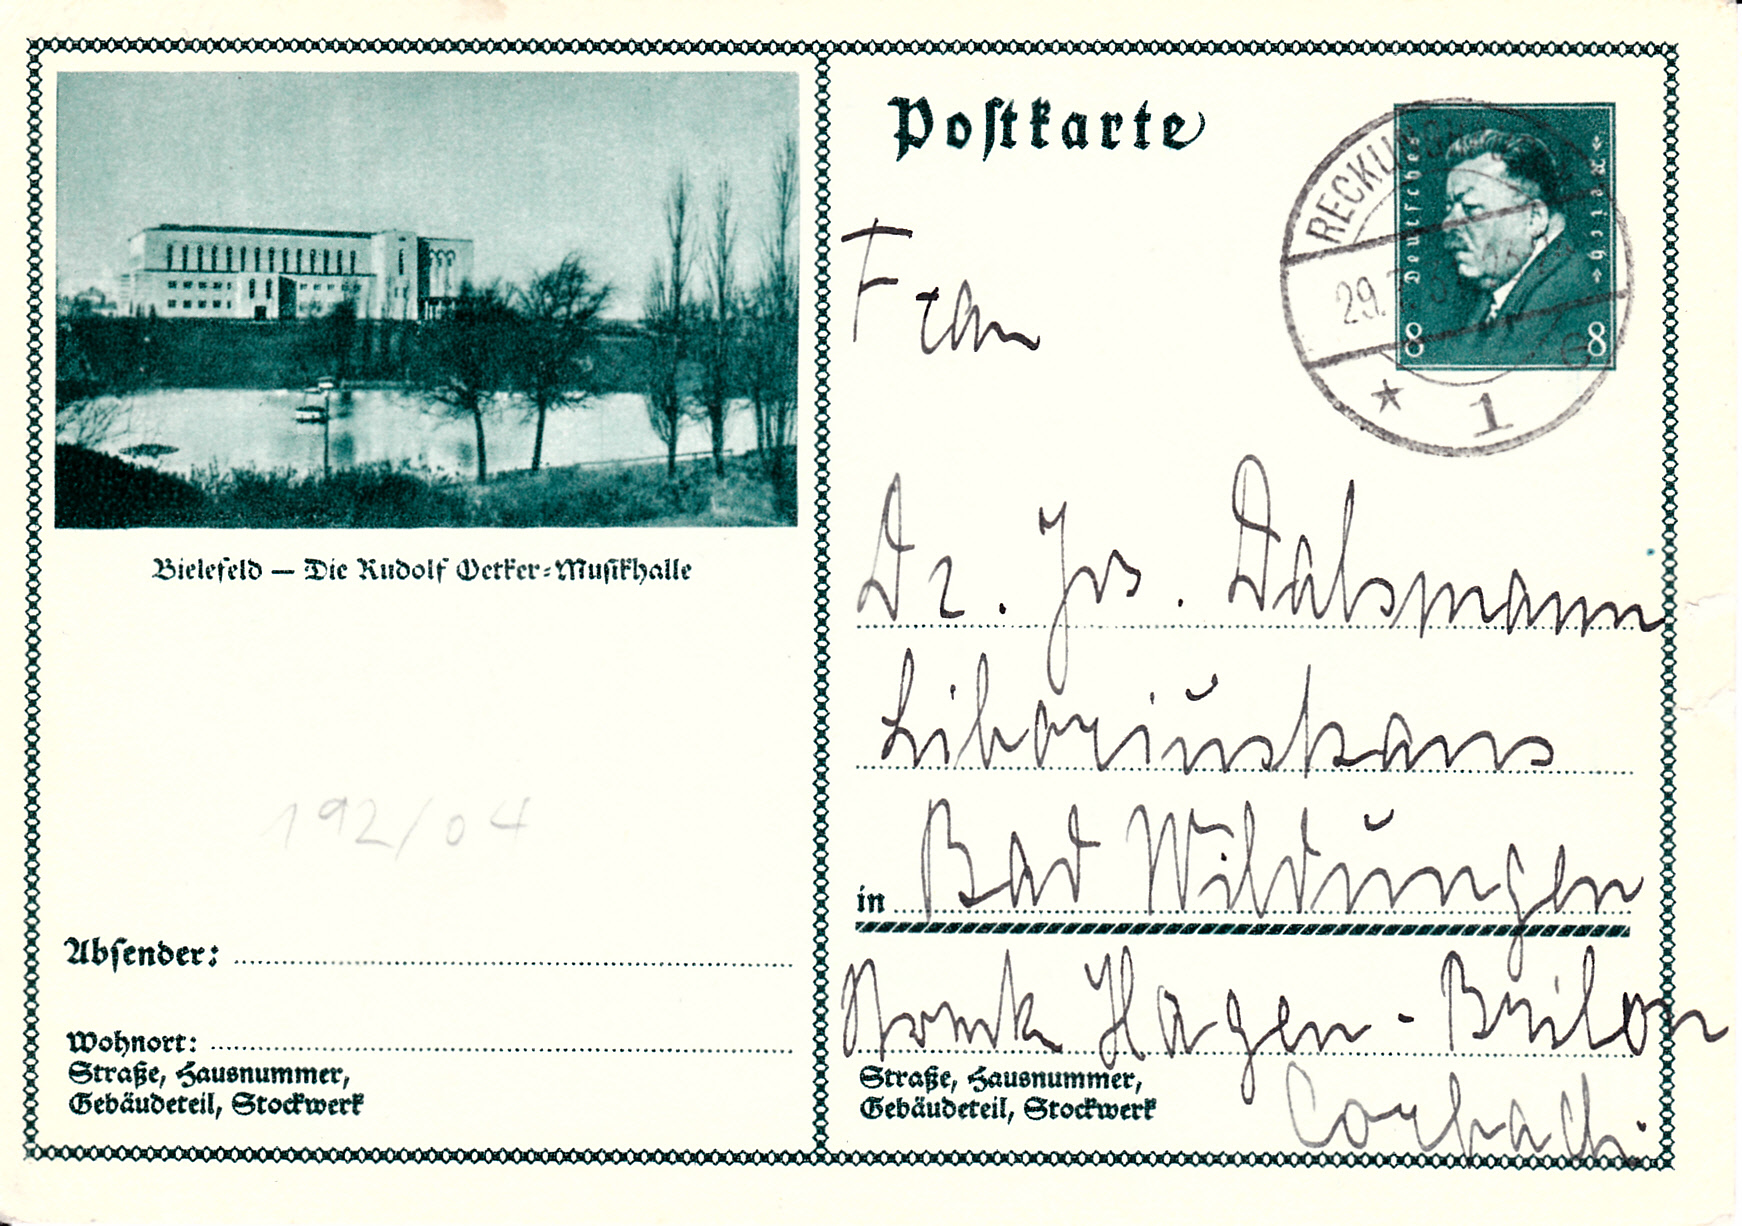 Postkarte
Deutsches Reich
8 8
RECKLINGH
29.
* 1
Bielefeld — Die Rudolf Oetker-Musikhalle
192/04
Absender:
Wohnort:
Straße, Hausnummer,
Gebäudeteil, Stockwerk
Frau
Dr. Jos. Dalsmann
Liboriushaus
in Bad Wildungen
Hagen - Brilon
Straße, Hausnummer,
Gebäudeteil, Stockwerk
Corbach.